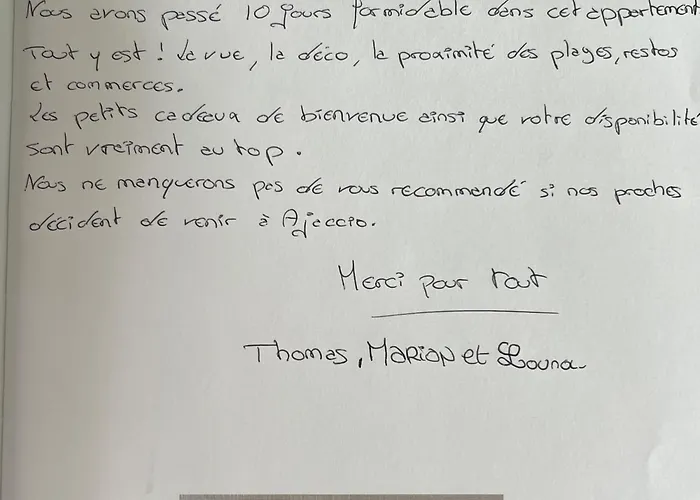 Nous avons passé 10 jours formidable dans cet appartement
Tout y est ! La vue, la déco, la proximité des plages, restos
et commerces.
Les petits cadeaux de bienvenue ainsi que votre disponibilité
sont vraiment au top.
Nous ne manquerons pas de vous recommendé si nos proches
décident de venir à Ajaccio.
Merci pour tout
Thomas, MARION et Louna